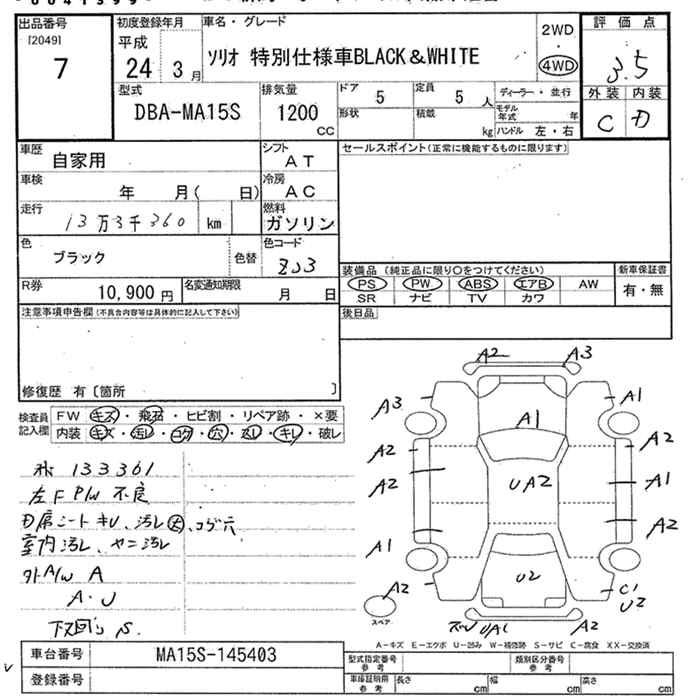 出品番号 初度登録年月 車名・グレード 2WD 評価点
[2049] 平成
7 24 3月 ソリオ 特別仕様車BLACK&WHITE 4WD 3.5
型式 排気量 ドア 5 定員 5人 ディーラー・並行 外装 内装
DBA-MA15S 1200 cc 形状 積載 kg モデル年式 年 C D
ハンドル 左・右
車歴 自家用 シフト AT セールスポイント(正常に機能するものに限ります)
車検 年 月( 日) 冷房 AC
走行 13万3千360 km 燃料 ガソリン
色 ブラック 色替 色コード ZJ3
装備品(純正品に限り○をつけてください) 新車保証書
R券 10,900円 名変通知期限 月 日 PS PW ABS エアB AW 有・無
SR ナビ TV カワ
注意事項申告欄(不具合内容等は具体的に記入して下さい) 後日品
修復歴 有〔箇所 〕
検査員記入欄 FW キズ・飛石・ヒビ割・リペア跡・×要
内装 キズ・汚レ・コゲ・穴・スレ・キレ・破レ
133361
左F P/W 不良
D席シート キレ、汚レ大、コゲ穴
室内汚レ、ヤニ汚レ
外A/W A
A・U
下回り S
A2 A3
A3 A1 A1
A2 A2
A2 UA2 A1
A2
A1
A2 U2 C1
U2
UA1 A2
スペア
A-キズ E-エクボ U-凹み W-補修跡 S-サビ C-腐食 XX-交換済
車台番号 MA15S-145403 型式指定番号参考 類別区分番号参考
登録番号 車庫証明用参考 長さ cm 幅 cm 高さ cm